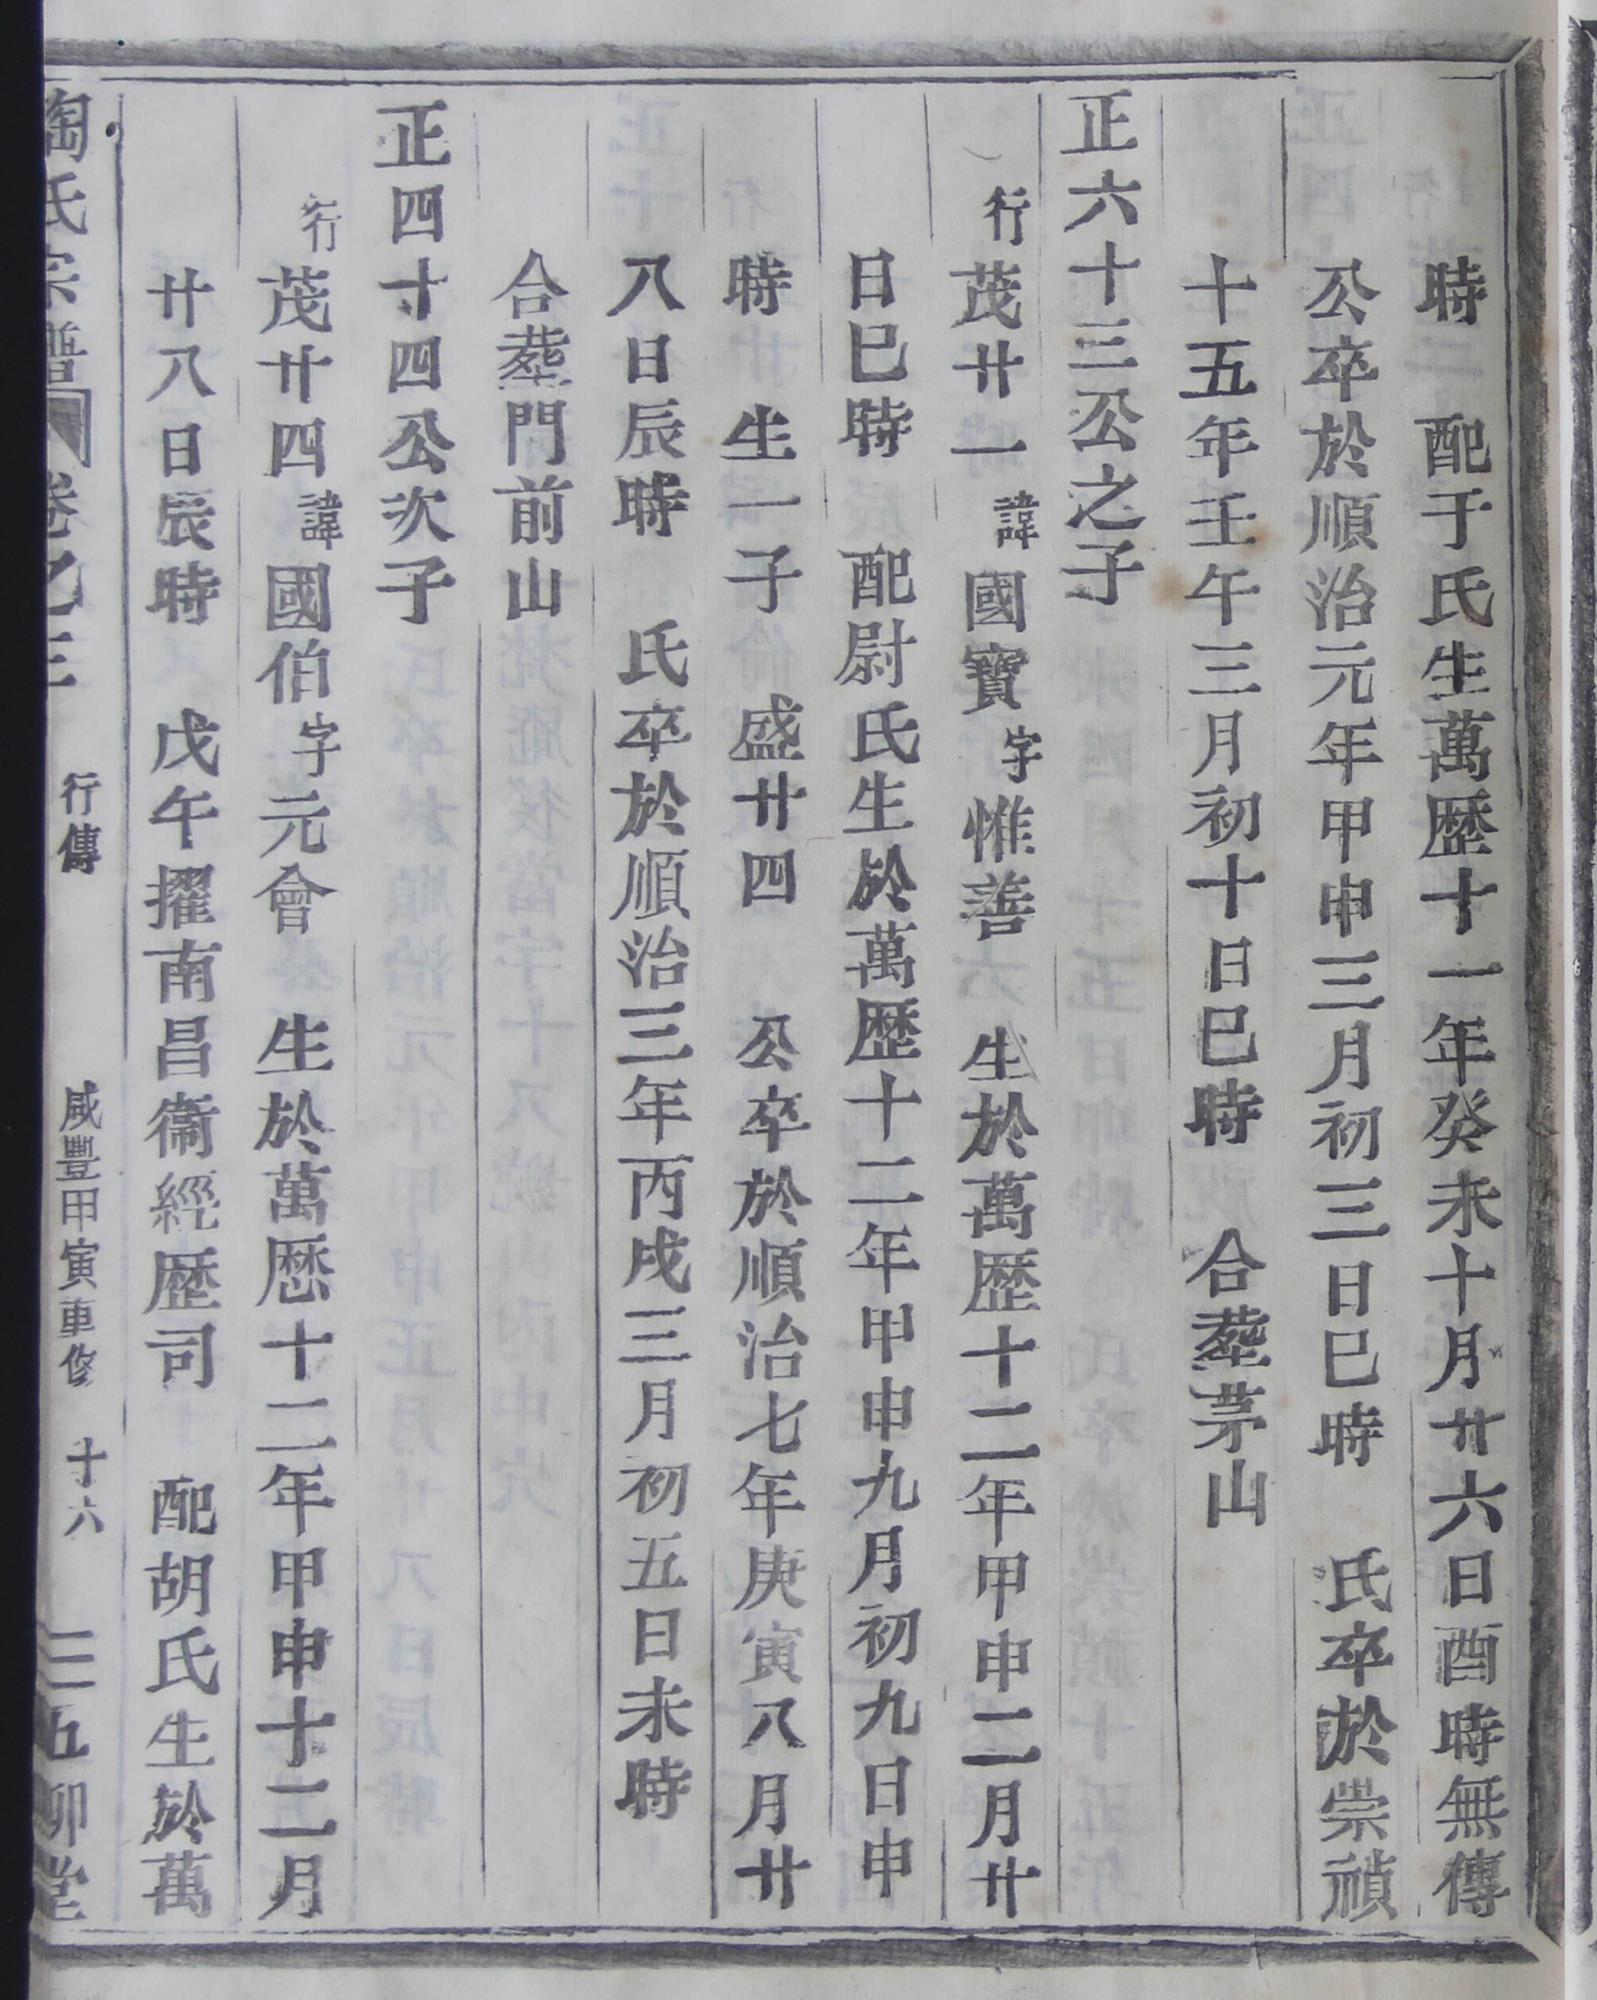 時　配于氏生萬歷十一年癸未十月廿六日酉時無傳
公卒於順治元年甲申三月初三日巳時　氏卒於崇禎
十五年壬午三月初十日巳時　合塟茅山
正六十三公之子
行茂廿一諱國寳字惟善　生於萬歷十二年甲申二月廿
日巳時　配尉氏生於萬歷十二年甲申九月初九日申
時　生一子　盛廿四　公卒於順治七年庚寅八月廿
八日辰時　氏卒於順治三年丙戌三月初五日未時
合塟門前山
正四十四公次子
行茂廿四諱國伯字元會　生於萬厯十二年甲申十二月
廿八日辰時　戊午擢南昌衞經歷司　配胡氏生於萬
陶氏宗譜　卷之三　行傳　咸豐甲寅重修　十六　五柳堂